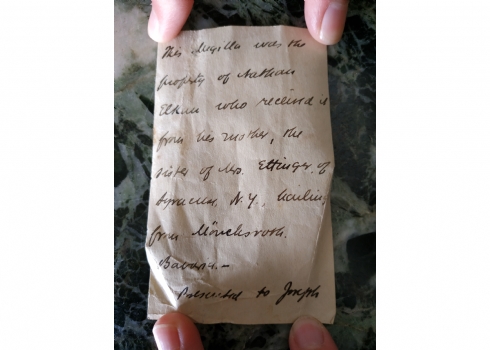 This Megilla was the
property of Nathan
Elkan who received it
from his mother, the
sister of Mrs. Ettinger, of
Syracuse, N.Y., hailing
from Mönchsroth.
Bavaria.—
Presented to Joseph